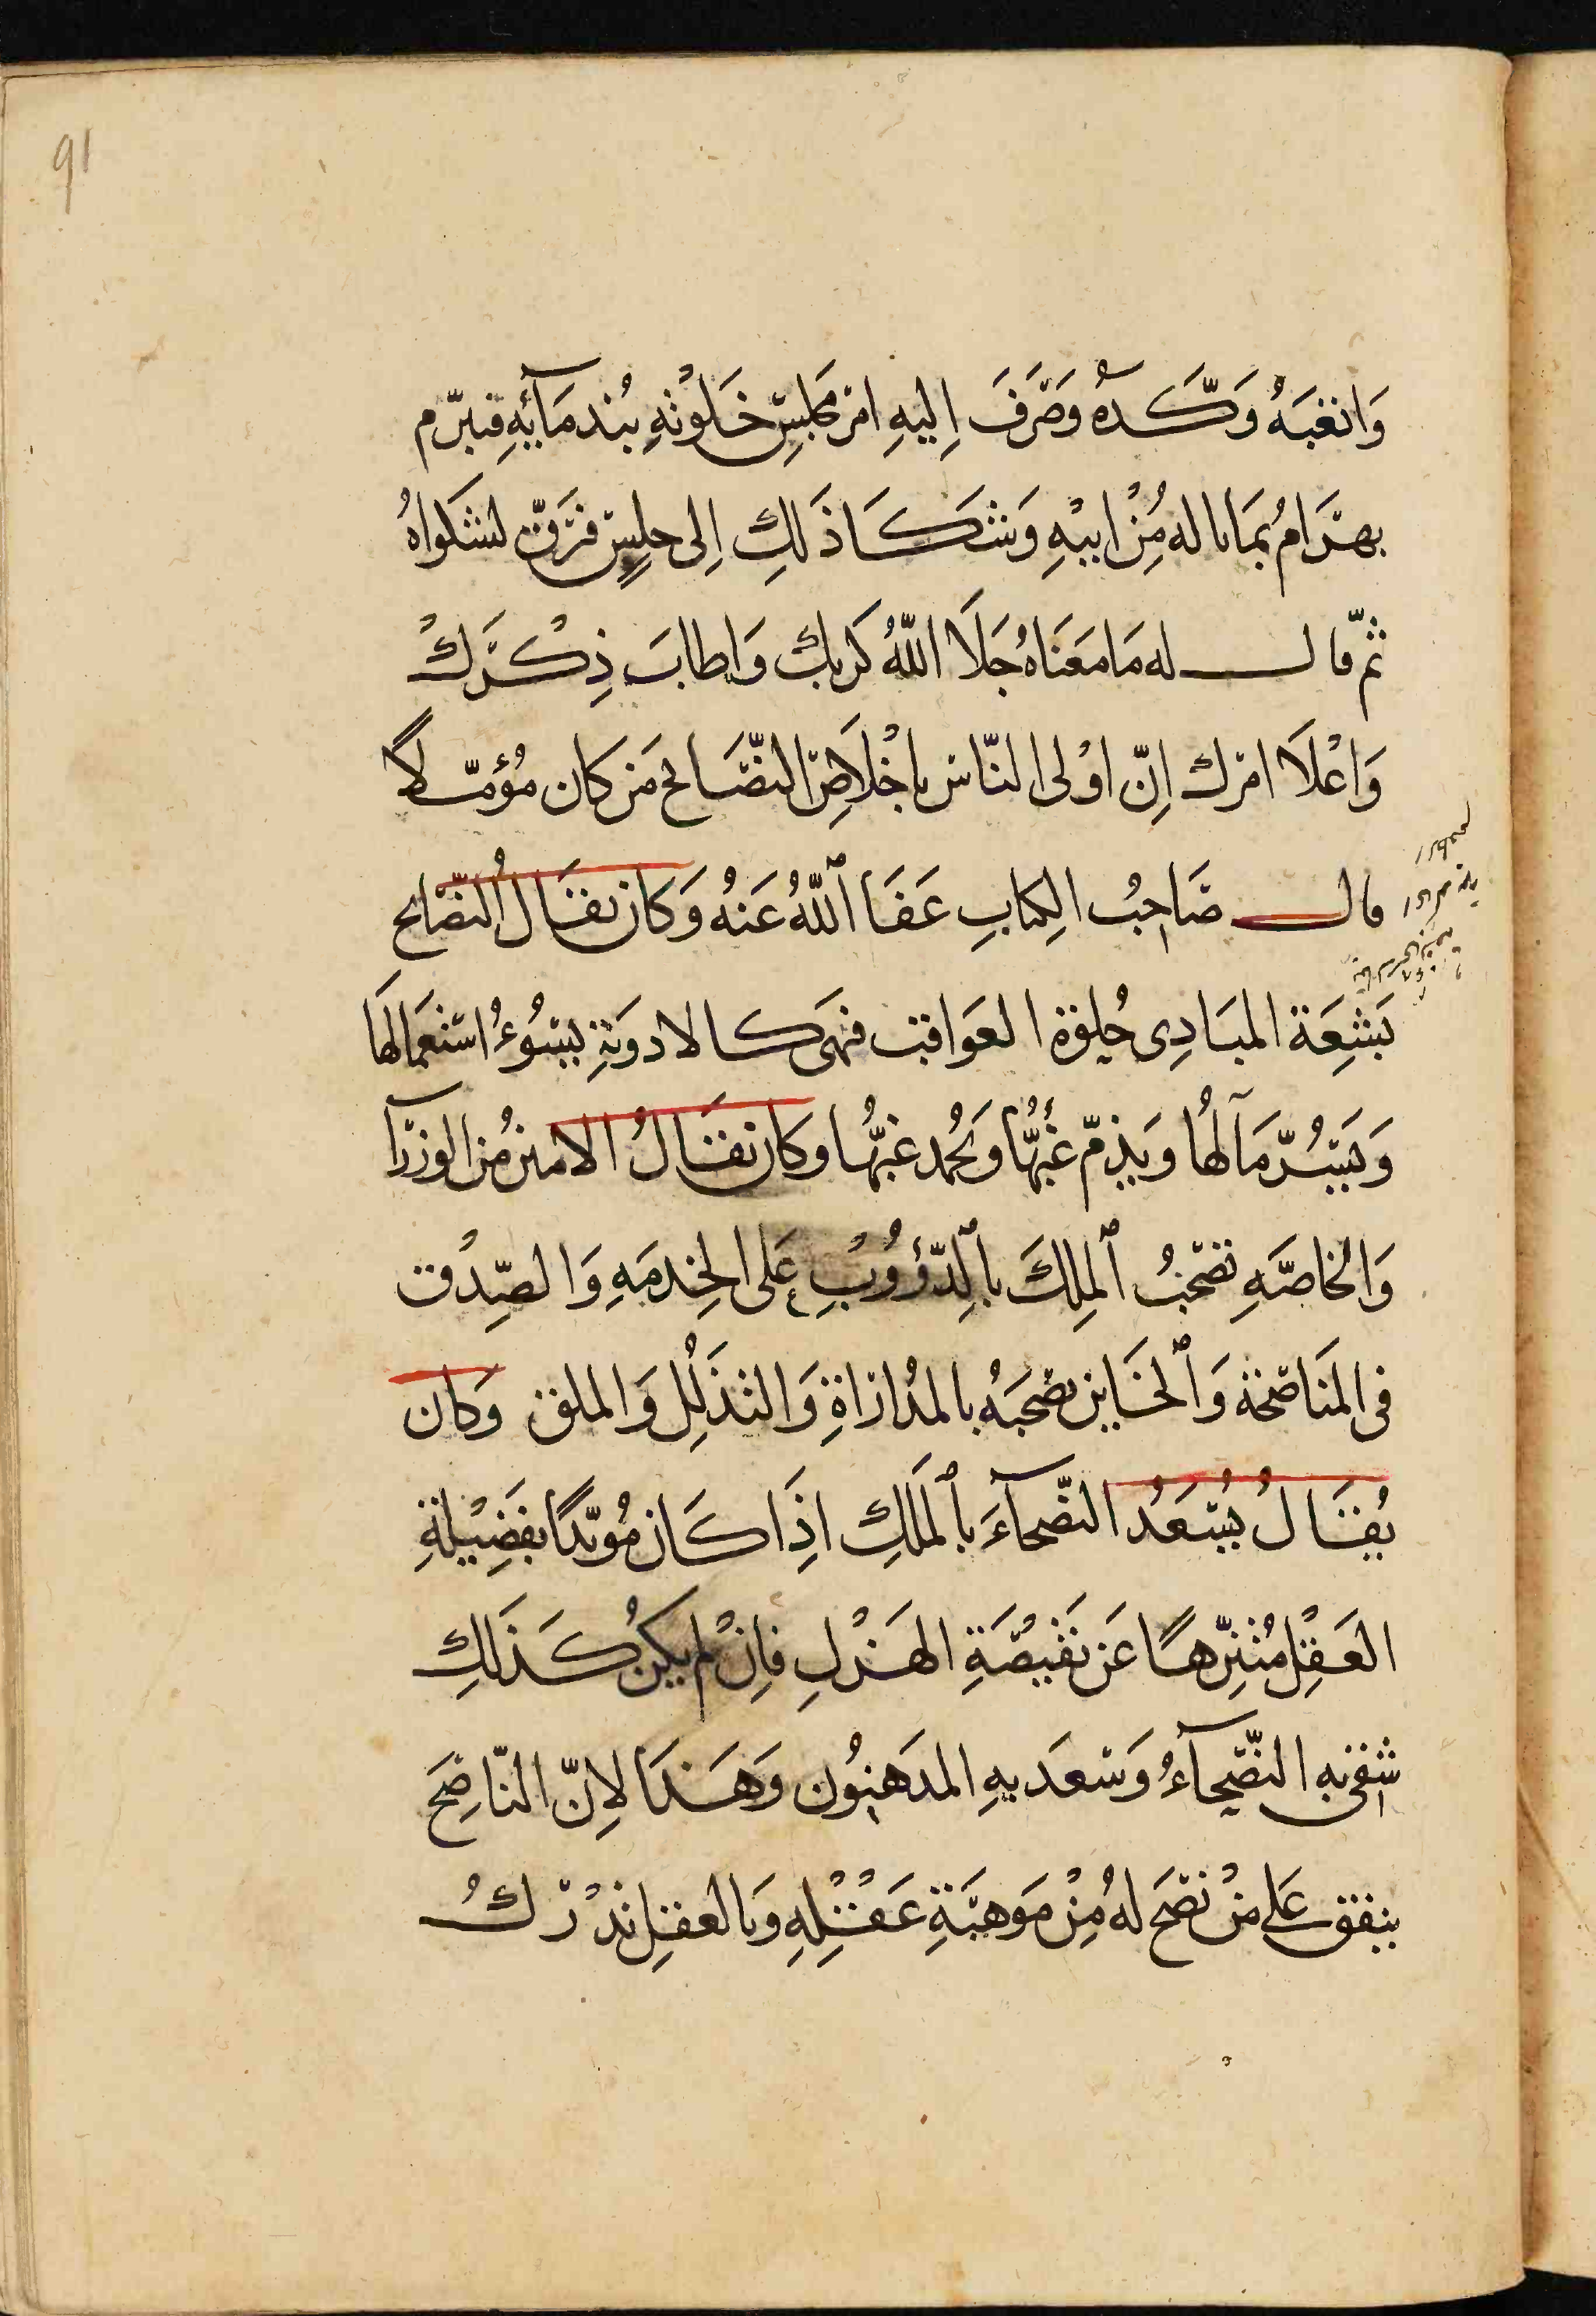 91
وَاتعَبَهُ وَكَّدهُ وَصَرَفَ اِليهِ امرَ مجلِسِ خَلوَتهِ بُندمَآئهِ فتبرّم
بهرَامُ بمَا ناله مِنْ ابيْهِ وَشَكَا ذَلكِ اِلى جليسٍ فرَقّ لشَكواهُ
ثمّ قال له مَا مَعَنَاهُ جَلَا اللّهُ كربكَ وَاطابَ ذِكْرَكْ
وَاعْلَا امرَك اِنّ اوْلى النّاس باخْلَاصِ النصَّايح مَن كان مُؤمّلاً
قال صَاحِبُ الكِتابِ عَفَا اللّهُ عَنهُ وَكان يقَالُ النصَّايح
بَشِعَة المبَادِى حُلوة العَوَاقب فهىَ كالادوَيةِ يَسُوءُ استعمَالهَا
وَيَسُرّ مَآلهُا وَيذمّ غبُّهَا وَيُحمد غبُّها وكان يقَالُ الامين مُن الوزرَآ
وَالخاصَّهِ يَصْحَبُ الملِكَ بالدّؤوُبِ عَلى الخِدمَهِ وَالصّدِق
فى المنَاصَحَة وَالخَاين يصْحَبهُ بالمدُاراةِ وَالتذَللُ وَالملق وَكان
يُقَالُ يُسَعَدُ النصُّحآءَ بالمَلكِ اذَِا كَان مُويّدًا بفَضِيْلةِ
العَقْلِ مُنزّهًا عَن نَقيْصَةِ الهَزْلِ فاِنْ لم يكُنْ كَذَلكِ
شقىَ به النصُّحآءُ وَسَعَد بهِ المدَهنِوُن وَهَذَا لاِنّ النّاصِحَ
ينفق عَلى مَنْ نصَحَ لهُ مِنْ مَوَهبَةِ عَقْلهِ وَبالعقلِ تدْرَكُ